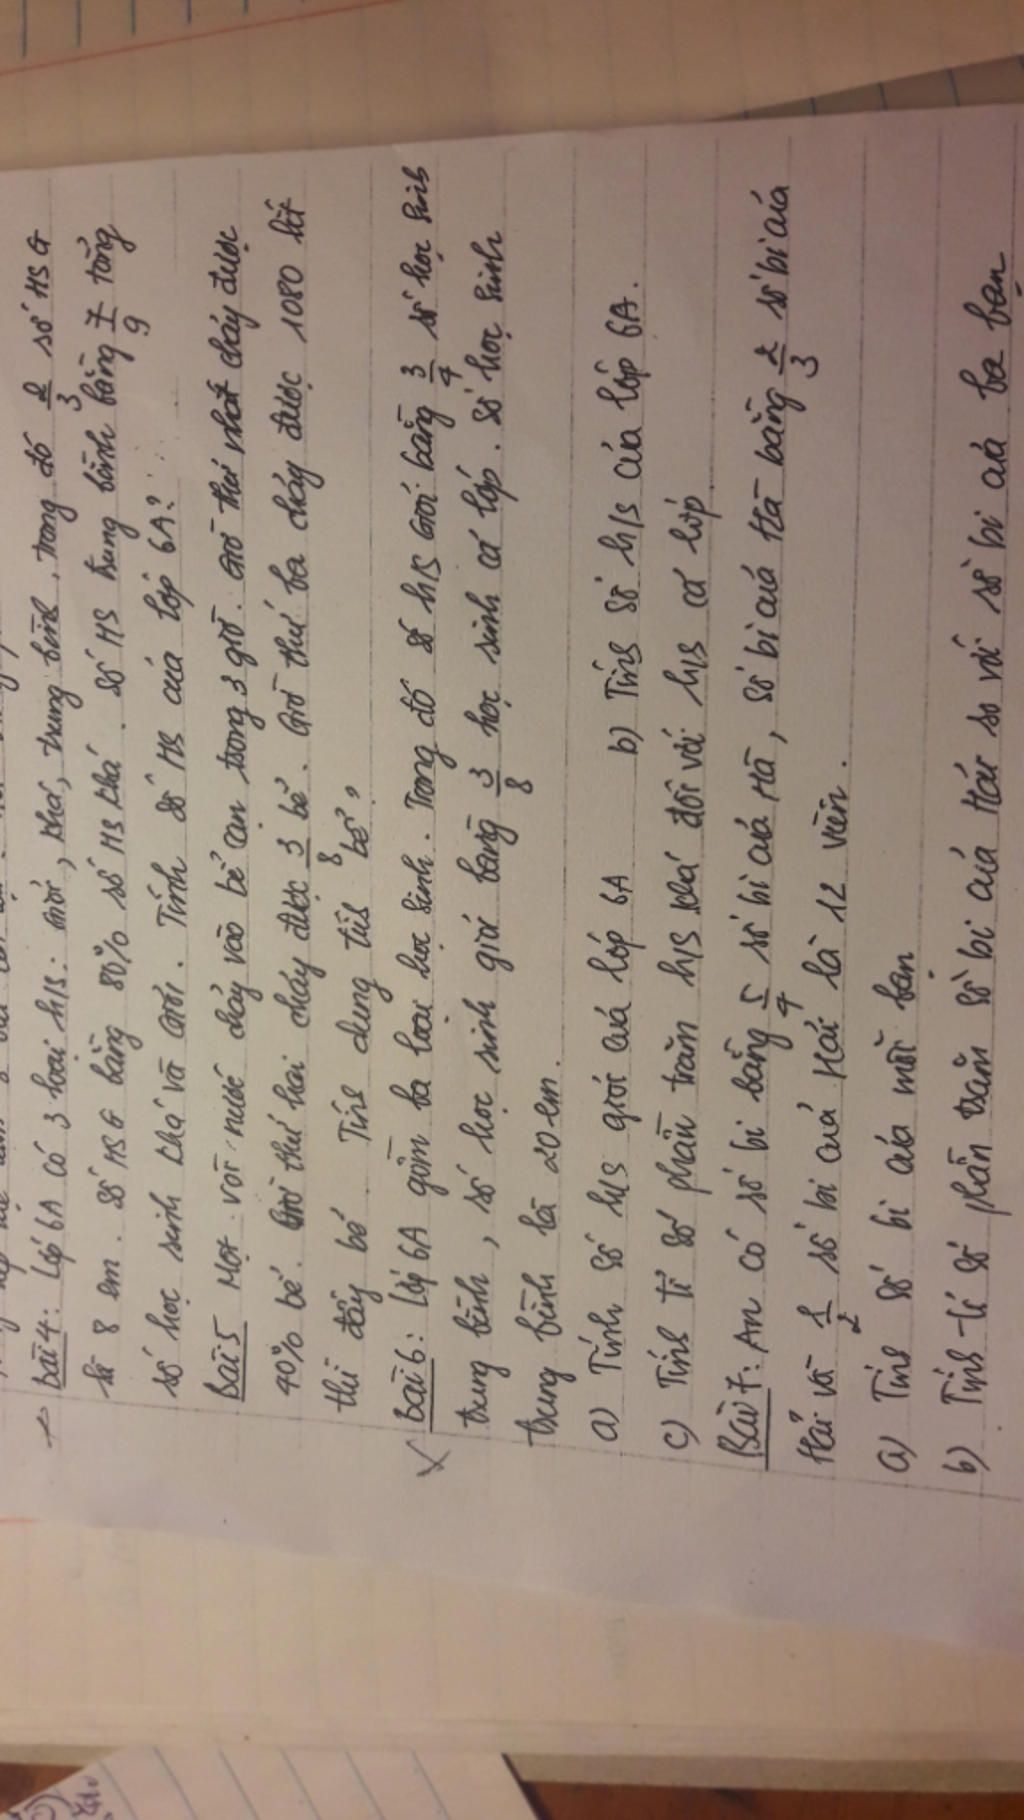 Bài 4: Lớp 6A có 3 loại h/s: giỏi, khá, trung bình, trong đó 2/3 số HSG
là 8 em. Số HSG bằng 80% số HS khá. Số HS trung bình bằng 7/9 tổng
số học sinh khá và giỏi. Tính số HS của lớp 6A?
Bài 5 Một vòi nước chảy vào bể cạn trong 3 giờ. Giờ thứ nhất chảy được
40% bể. Giờ thứ hai chảy được 3/8 bể. Giờ thứ ba chảy được 1080 lít
thì đầy bể Tính dung tích bể?
Bài 6: Lớp 6A gồm ba loại học sinh. Trong đó số h/s giỏi bằng 3/4 số học sinh
trung bình, số học sinh giỏi bằng 3/8 học sinh cả lớp. Số học sinh
trung bình là 20 em.
a) Tính số h/s giỏi của lớp 6A b) Tính số h/s của lớp 6A.
c) Tính tỉ số phần trăm h/s khá đối với h/s cả lớp
Bài 7: An có số bi bằng 5/4 số bi của Hà, số bi của Hà bằng 2/3 số bi của
Hải và 1/2 số bi của Hải là 12 viên.
a) Tính số bi của mỗi bạn
b) Tính tỉ số phần trăm số bi của Hải so với số bi của ba bạn